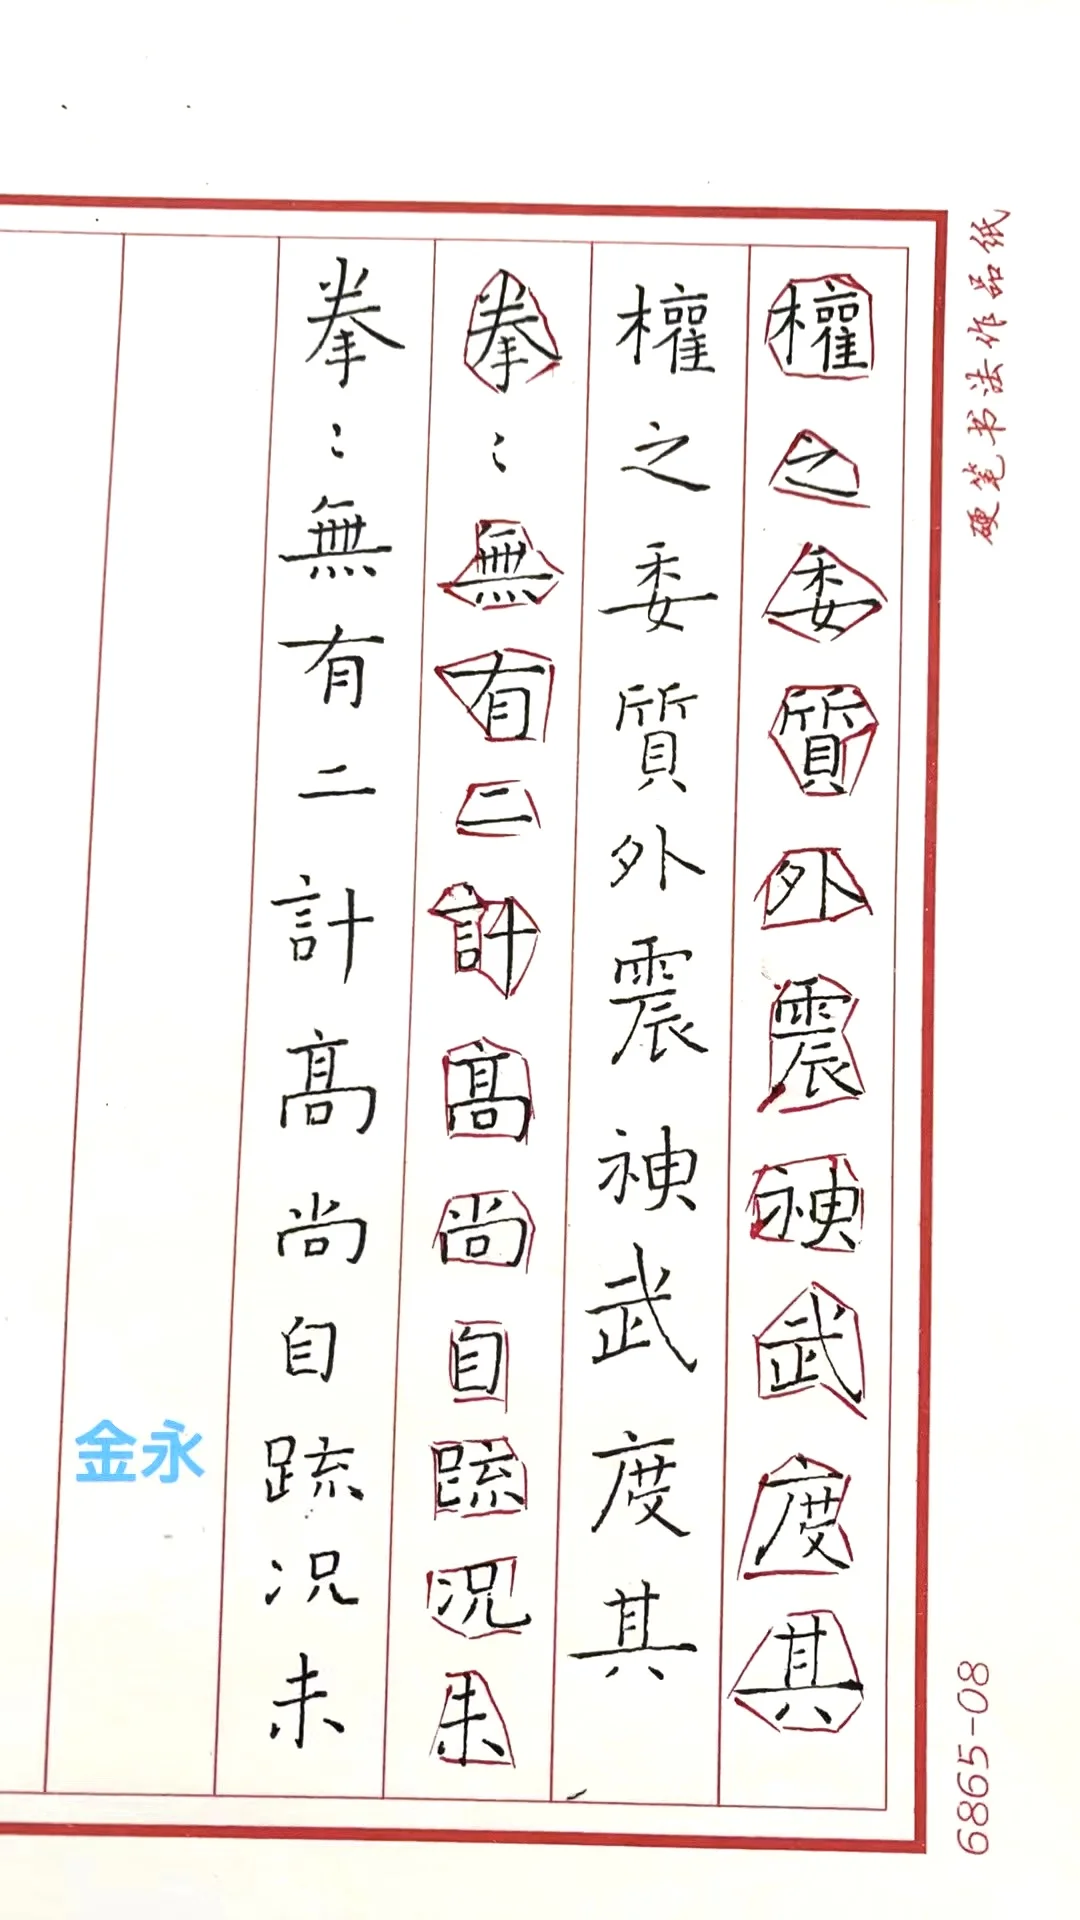 權之委質外震神武度其
權之委質外震神武度其
拳〻無有二計高尚自疏况未
拳〻無有二計高尚自疏况未
硬笔书法作品纸
6865-08
金永